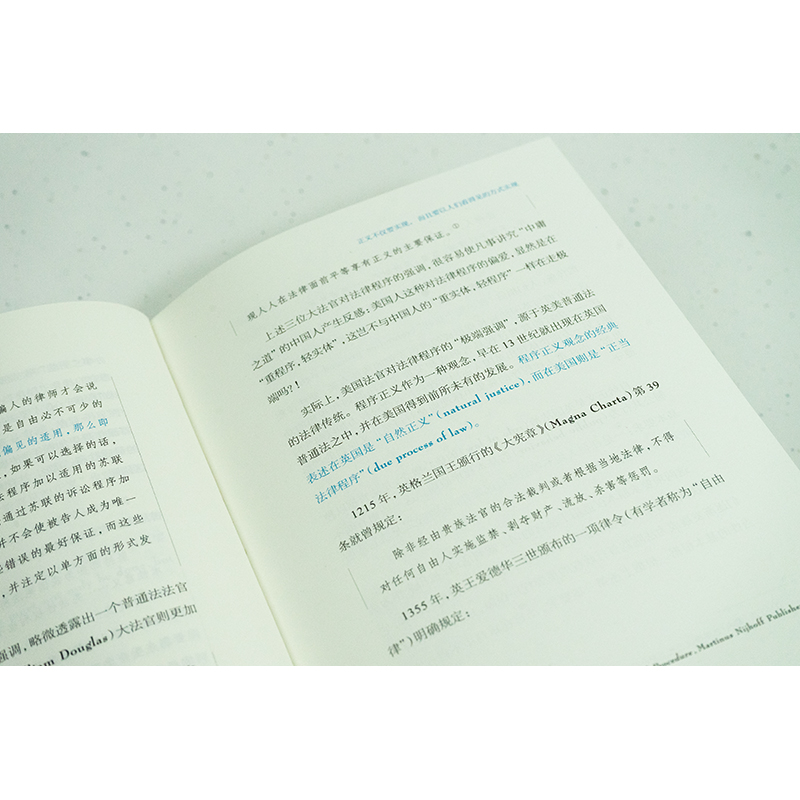 偏人的律师才会说
是自由必不可少的
偏见的适用，那么即
，如果可以选择的话，
法程序加以适用的苏联
通过苏联的诉讼程序
并不会使被告人成为唯一
错误的最好保证，而这些
，并注定以单方面的形式发
强调，略微透露出一个普通法法官
Douglas）大法官则更加
正义不仅要实现，而且要以人们看得见的方式实现
现人人在法律面前平等享有正义的主要保证。①
上述三位大法官对法律程序的强调，很容易使凡事讲究“中庸
之道”的中国人产生反感：美国人这种对法律程序的偏爱，显然是在
“重程序，轻实体”，这岂不与中国人的“重实体，轻程序”一样在走极
端吗？！
实际上，美国法官对法律程序的“极端强调”，源于英美普通法
的法律传统。程序正义作为一种观念，早在 13 世纪就出现在英国
普通法之中，并在美国得到前所未有的发展。程序正义观念的经典
表述在英国是“自然正义”（natural justice），而在美国则是“正当
法律程序”（due process of law）。
1215 年，英格兰国王颁行的《大宪章》（Magna Charta）第 39
条就曾规定：
除非经由贵族法官的合法裁判或者根据当地法律，不得
对任何自由人实施监禁、剥夺财产、流放、杀害等惩罚。
1355 年，英王爱德华三世颁布的一项律令（有学者称为“自由
律”）明确规定：
Procedure, Martinus Nijhoff Publishe